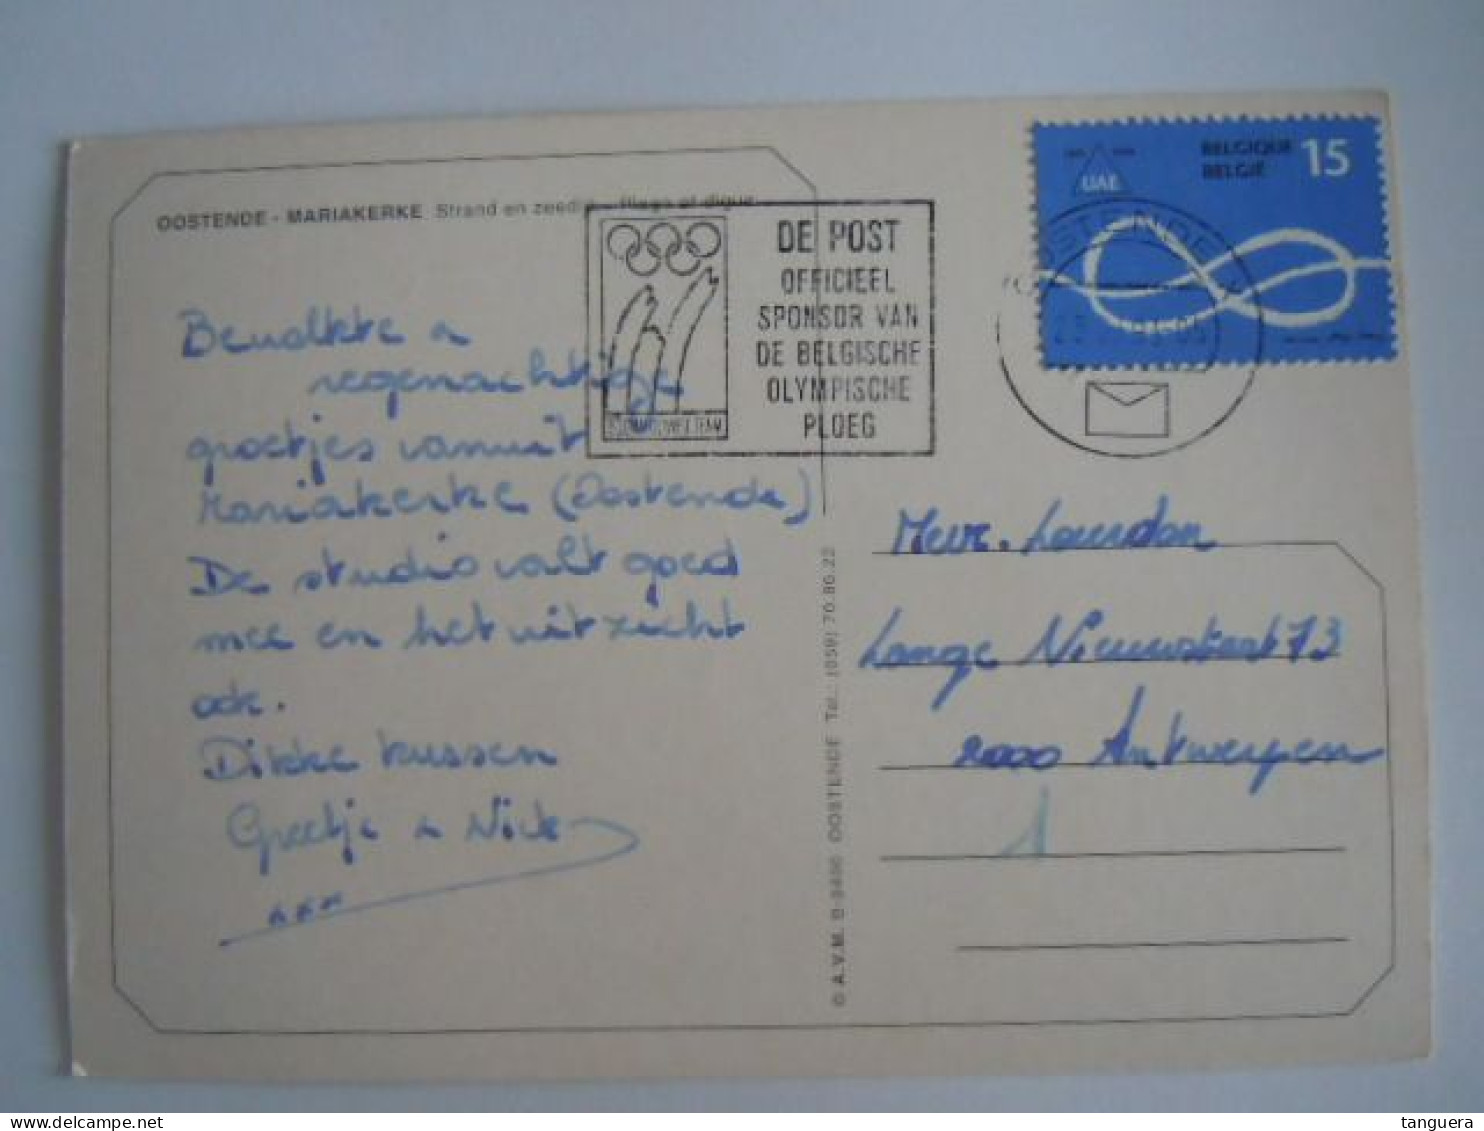 OOSTENDE - MARIAKERKE Strand en zeedijk - Plage et digue
DE POST
OFFICIEEL
SPONSOR VAN
DE BELGISCHE
OLYMPISCHE
PLOEG
UAE
BELGIQUE
BELGIË
15
OOSTENDE
Bewolkte &
regenachtige
groetjes vanuit
Mariakerke (Oostende)
De studio valt goed
mee en het uitzicht
ook.
Dikke kussen
Greetje & Nick
xxx
Mevr.
Lange Nieuwstraat 73
2000 Antwerpen
1
© A.V.M. B-8400 OOSTENDE Tel.: (059) 70.80.22
tanguera